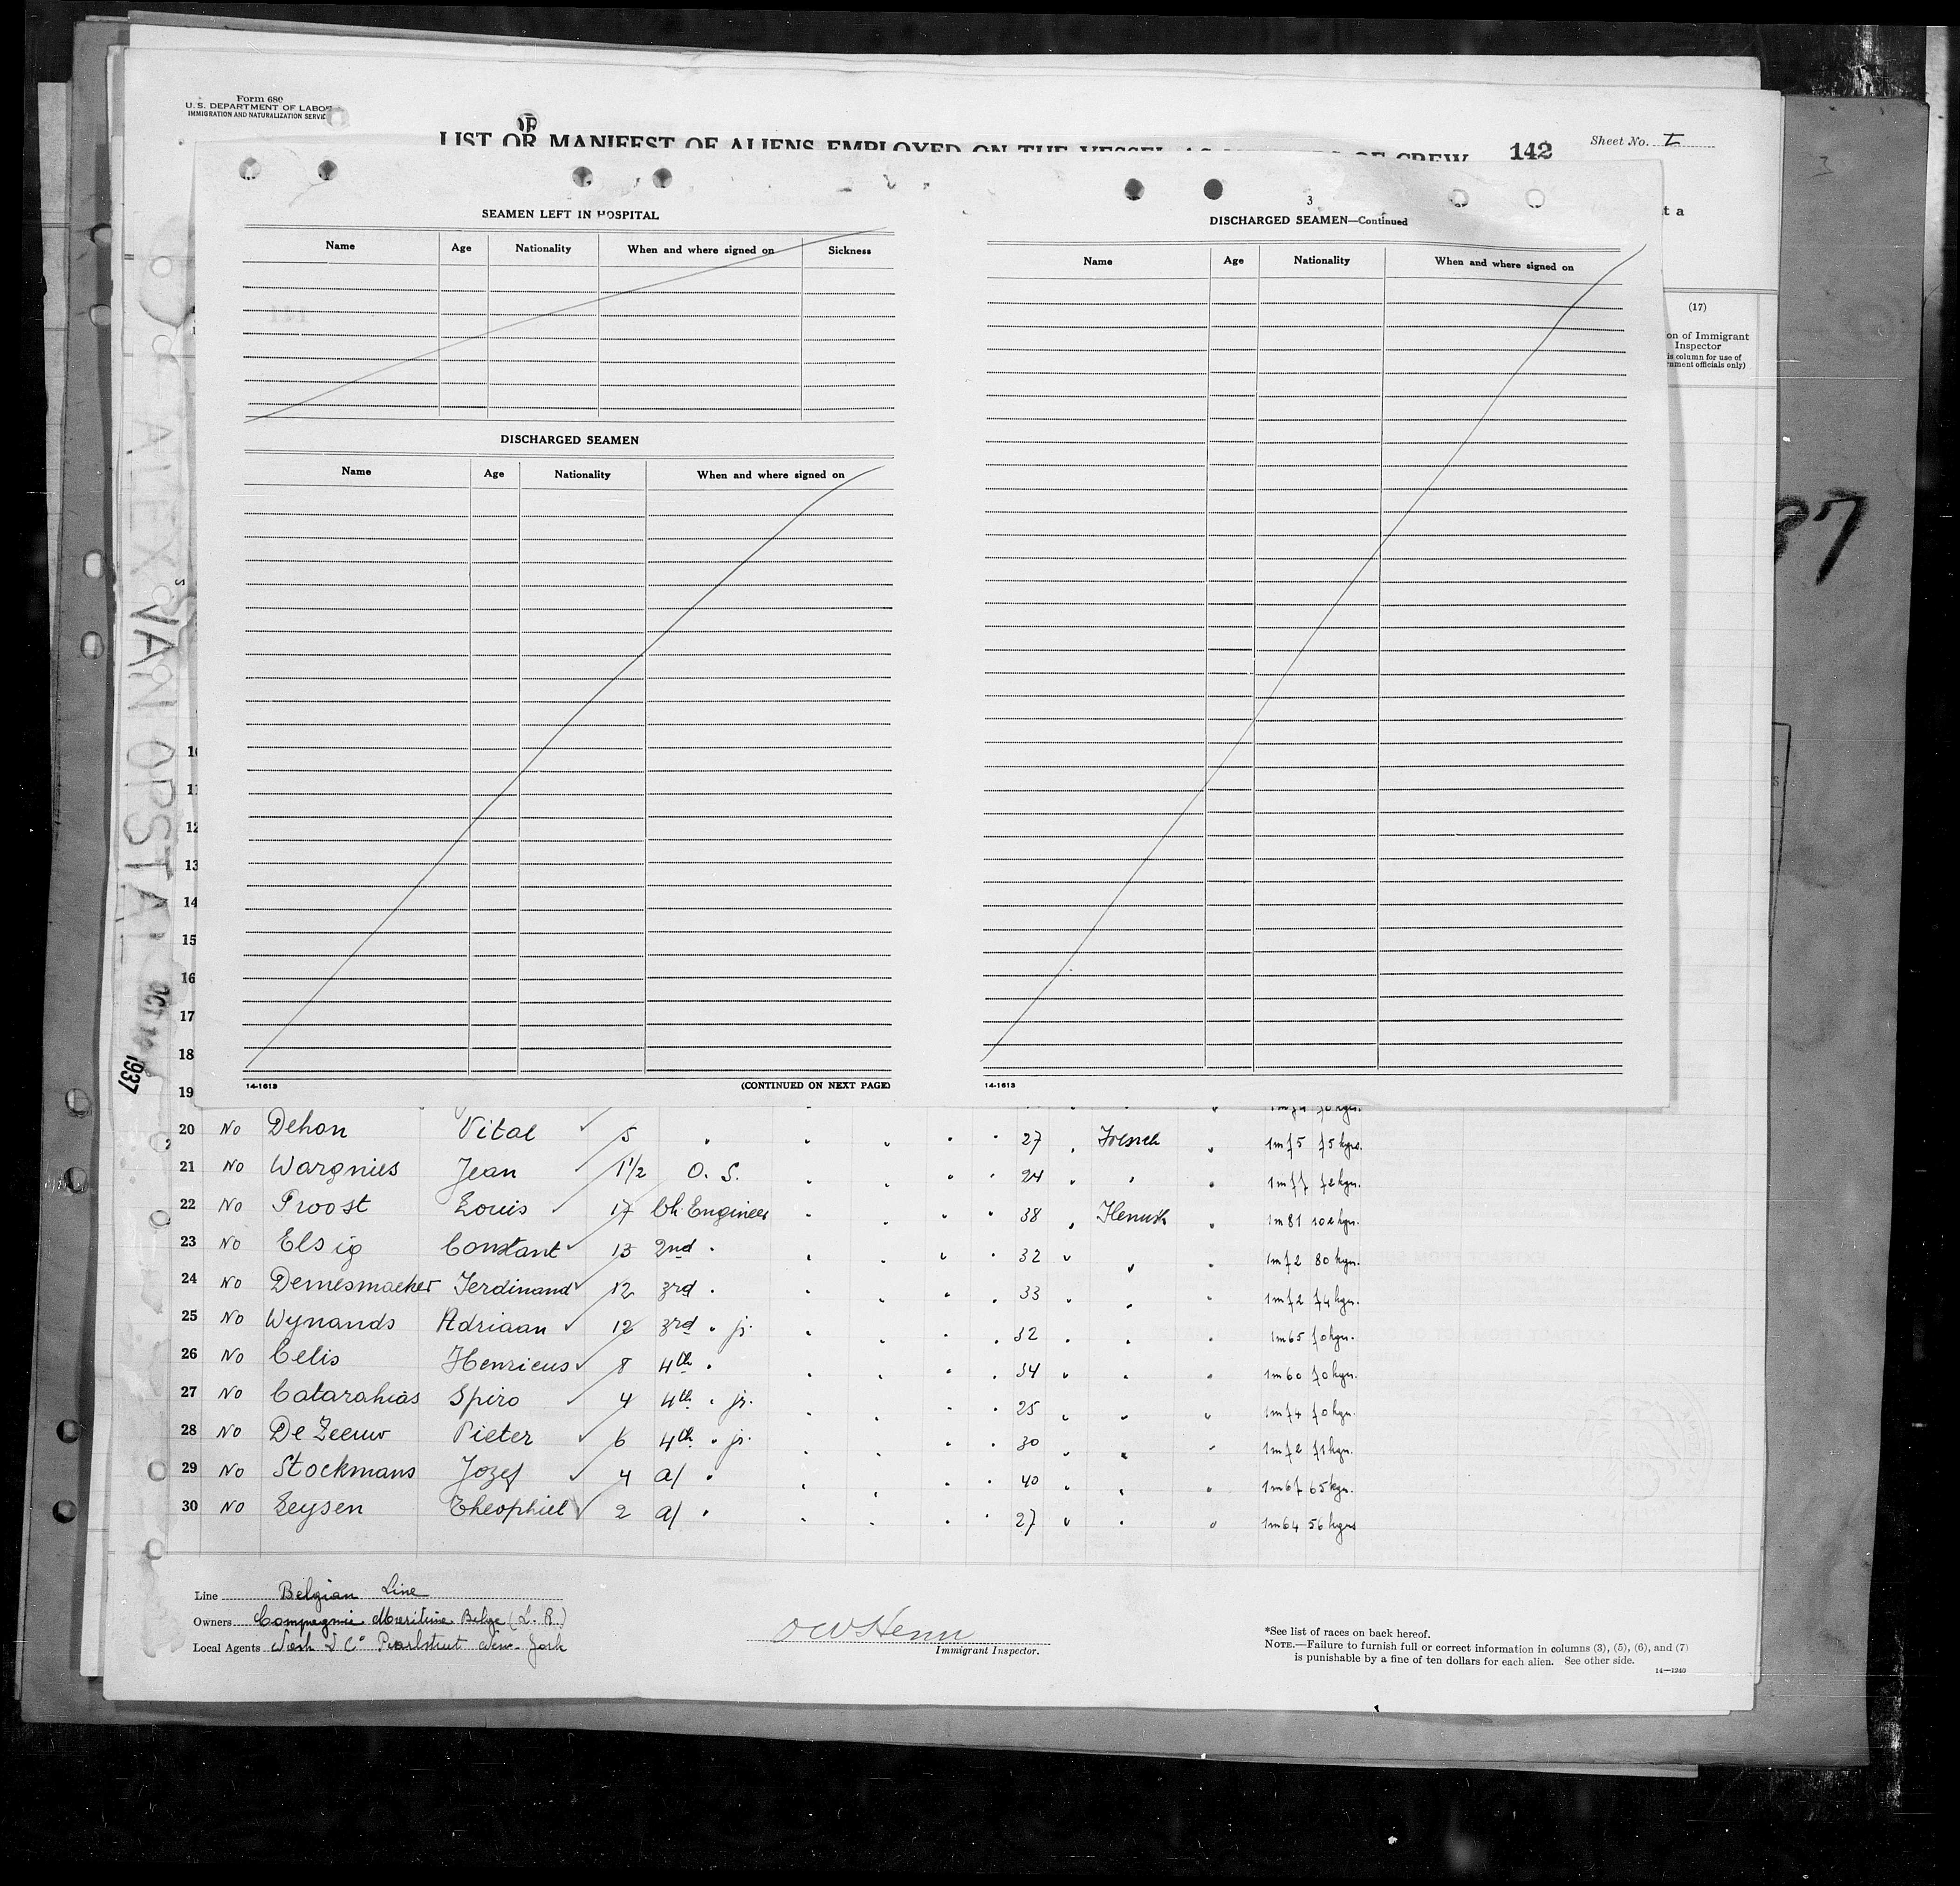 Form 680
U. S. DEPARTMENT OF LABOR
IMMIGRATION AND NATURALIZATION SERVIC
LIST OR MANIFEST OF ALIENS EMPLOYED ON THE VESSEL AS OF CREW
142
Sheet No. I
SEAMEN LEFT IN HOSPITAL
Name Age Nationality When and where signed on Sickness
DISCHARGED SEAMEN
Name Age Nationality When and where signed on
14-1613 (CONTINUED ON NEXT PAGE)
3
DISCHARGED SEAMEN—Continued
Name Age Nationality When and where signed on
14-1613
t a
(17)
on of Immigrant
Inspector
is column for use of
rnment officials only)
37
ALEX VAN OPSTAL OCT 1937
10
11
12
13
14
15
16
17
18
19
20 No Dehon Vital ✓ 5 " " " " " 27 " French " 1m75 75kgs.
21 No Wargnies Jean ✓ 1½ O. S. " " " " 24 " " " 1m77 72kgs.
22 No Proost Louis ✓ 17 Ch. Engineer " " " " 38 " Flemish " 1m81 102kgs.
23 No Elsig Constant ✓ 13 2nd " " " " " 32 " " " 1m72 80kgs.
24 No Demesmaeker Ferdinand ✓ 12 3rd " " " " " 33 " " " 1m72 74kgs.
25 No Wynands Adriaan ✓ 12 3rd " jr. " " " " 32 " " " 1m65 70kgs.
26 No Celis Henricus ✓ 8 4th " " " " " 34 " " " 1m60 70kgs.
27 No Catarahias Spiro ✓ 4 4th " jr. " " " " 25 " " " 1m74 70kgs.
28 No De Zeeuw Pieter ✓ 6 4th " jr. " " " " 30 " " " 1m72 71kgs.
29 No Stockmans Jozef ✓ 4 a/ " " " " " 40 " " " 1m67 65kgs.
30 No Leysen Theophiel ✓ 2 a/ " " " " " 27 " " " 1m64 56kgs
Line Belgian Line
Owners Compagnie Maritime Belge (L. R.)
Local Agents & Co Pearlstreet New-York
O W Henn
Immigrant Inspector.
*See list of races on back hereof.
NOTE.—Failure to furnish full or correct information in columns (3), (5), (6), and (7)
is punishable by a fine of ten dollars for each alien. See other side.
14—1240